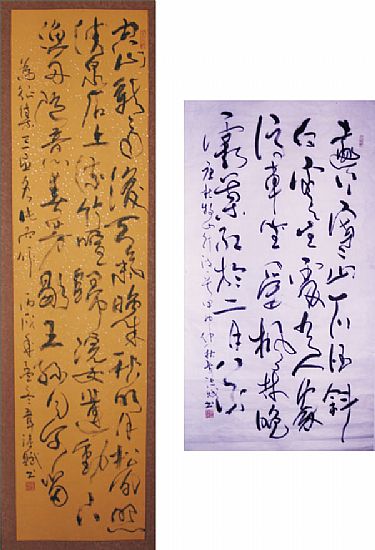 空山新雨後天氣晚來秋明月松間照
清泉石上流竹喧歸浣女蓮動下
漁舟隨意春芳歇王孫自可留
遠上寒山石徑斜
白雲生處有人家
停車坐愛楓林晚
霜葉紅於二月花
唐杜牧山行詩